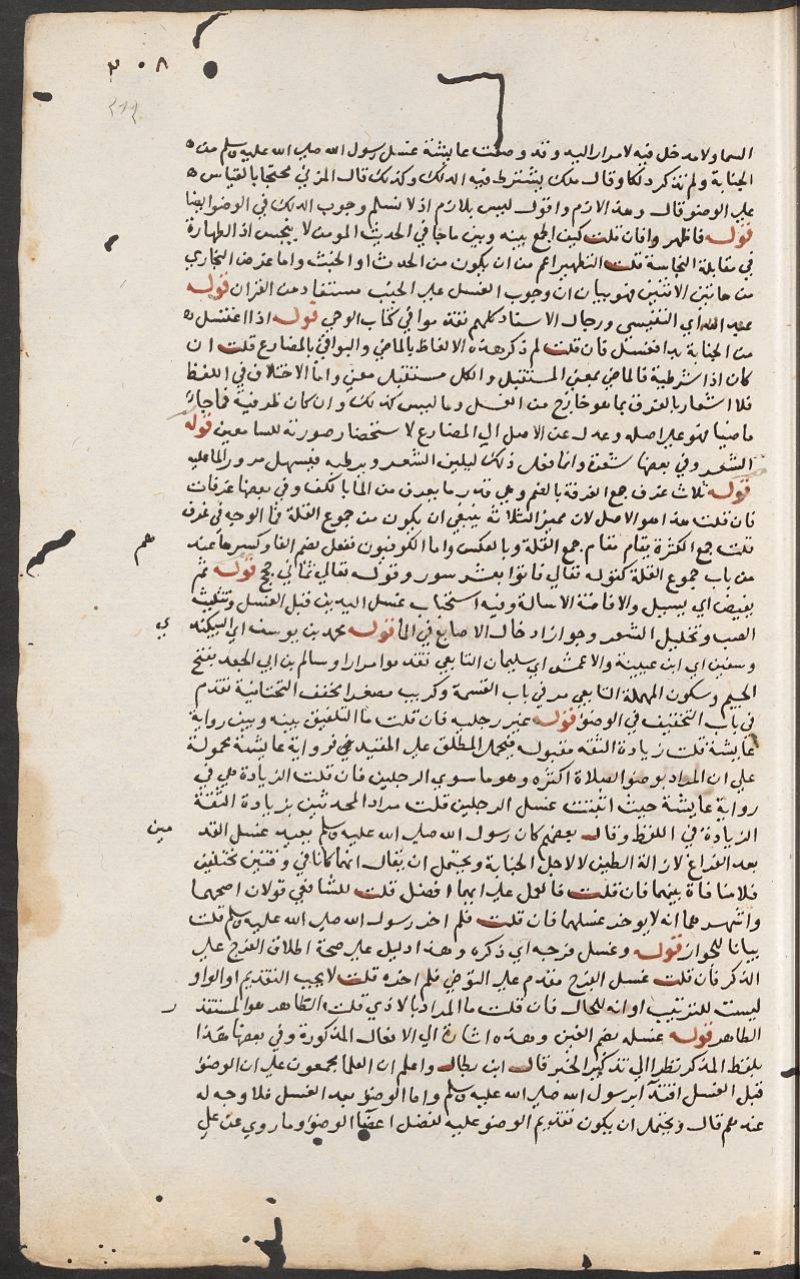 ٣٠٨
السما ولا مدخل فيه لامرار اليد وقد وصفت عايشة غسل رسول الله صلى الله عليه وسلم من
الجنابة ولم تذكر دلكا وقال ملك يشترط فيه الدلك وكذلك قال المزني محتجا بالقياس
على الوضو قال وهذا لازم واقول ليس بلازم اذ لا نسلم وجوب الدلك في الوضو ايضا
قوله فاظهر وا فان قلت كيف الجمع بينه وبين ما جا في الحديث المومن لا ينجس اذ الطهارة
في مقابلة النجاسة قلت التطهير اعم من ان يكون من الحدث او الخبث واما غرض البخاري
من هاتين الايتين فهو بيان ان وجوب الغسل على الجنب مستفاد من القران قوله
عبد الله اي التنيسي ورجال الاسناد كلهم تقدموا في كتاب الوحي قوله اذا اغتسل
من الجنابة بدا فغسل فان قلت لم ذكر هذه الالفاظ بالماضي والبواقي بالمضارع قلت ان
كان اذا شرطية فالماضي بمعنى المستقبل والكل مستقبل معنى واما الاختلاف في اللفظ
فلا اشعار بالفرق بما هو خارج من الغسل وما ليس كذلك وان كان ظرفية فما جا
ماضيا فهو على اصله وعدل عن الاصل الى المضارع لاستحضار صورته للسامعين قوله
الشعر وفي بعضها شعره وانما فعل ذلك ليلين الشعر ويرطبه فيسهل مرور الما عليه
قوله ثلاث غرف جمع الغرفة بالضم وهي قدر ما يغرف من الما بالكف وفي بعضها غرفات
فان قلت هذا هو الاصل لان مميز الثلاثة ينبغي ان يكون من جموع القلة فما الوجه في غرف
قلت جمع الكثرة يقام مقام جمع القلة وبالعكس واما الكوفيون ففعل بضم الفا وكسرها عند
هم
من باب جموع القلة كقوله تعالى فاتوا بعشر سور وقوله تعالى ثماني حجج قوله ثم
يفيض اي يسيل والافاضة الاسالة وفيه استحباب غسل اليدين قبل الغسل وتثليث
الصب وتخليل الشعر وجواز ادخال الاصابع في الما قوله محمد بن يوسف اي البيكند
ي
وسفين اي ابن عيينة والاعمش اي سليمان التابعي تقدموا مرارا وسالم بن ابي الجعد بفتح
الجيم وسكون المهملة التابعي مر في باب التسمية وكريب مصغرا مخفف التحتانية تقدم
في باب التخفيف في الوضو قوله غير رجليه فان قلت ما التلفيق بينه وبين رواية
عايشة قلت زيادة الثقة مقبوله فيحمل المطلق على المقيد فرواية عايشة محمولة
على ان المراد بوضو الصلاة اكثره وهو ما سوى الرجلين فان قلت الزيادة هي في
رواية عايشة حيث اثبتت غسل الرجلين قلت مراد المحدثين بزيادة الثقة
الزيادة في اللفظ وقال بعضهم كان رسول الله صلى الله عليه وسلم يعيد غسل القد
مين
بعد الفراغ لازالة الطين لا لاجل الجنابة ويحتمل ان يقال انهما كانا في وقتين مختلفين
فلا منافاة بينهما فان قلت فالعمل على ايهما افضل قلت للشافعي قولان اصحهما
واشهرهما انه لا يوخر غسلهما فان قلت فلم اخر رسول الله صلى الله عليه وسلم قلت
بيانا للجواز قوله وغسل فرجه اي ذكره وهذا دليل على صحة اطلاق الفرج على
الذكر فان قلت غسل الفرج مقدم على التوضي فلم اخره قلت لا يجب التقديم او الواو
ليست للترتيب او انه للحال فان قلت ما المراد بالاذي قلت الظاهر هو المستقذ
ر
الطاهر قوله غسله بضم الغين وهذه اشارة الى الافعال المذكورة وفي بعضها هذا
بلفظ المذكر نظرا الى تذكير الخبر قال ابن بطال واعلم ان العلما مجمعون على ان الوضو
قبل الغسل اقتدآ برسول الله صلى الله عليه وسلم واما الوضو بعد الغسل فلا وجه له
عندهم قال ويحتمل ان يكون تقديم الوضو عليه لفضل اعضآ الوضو وما روي عن على